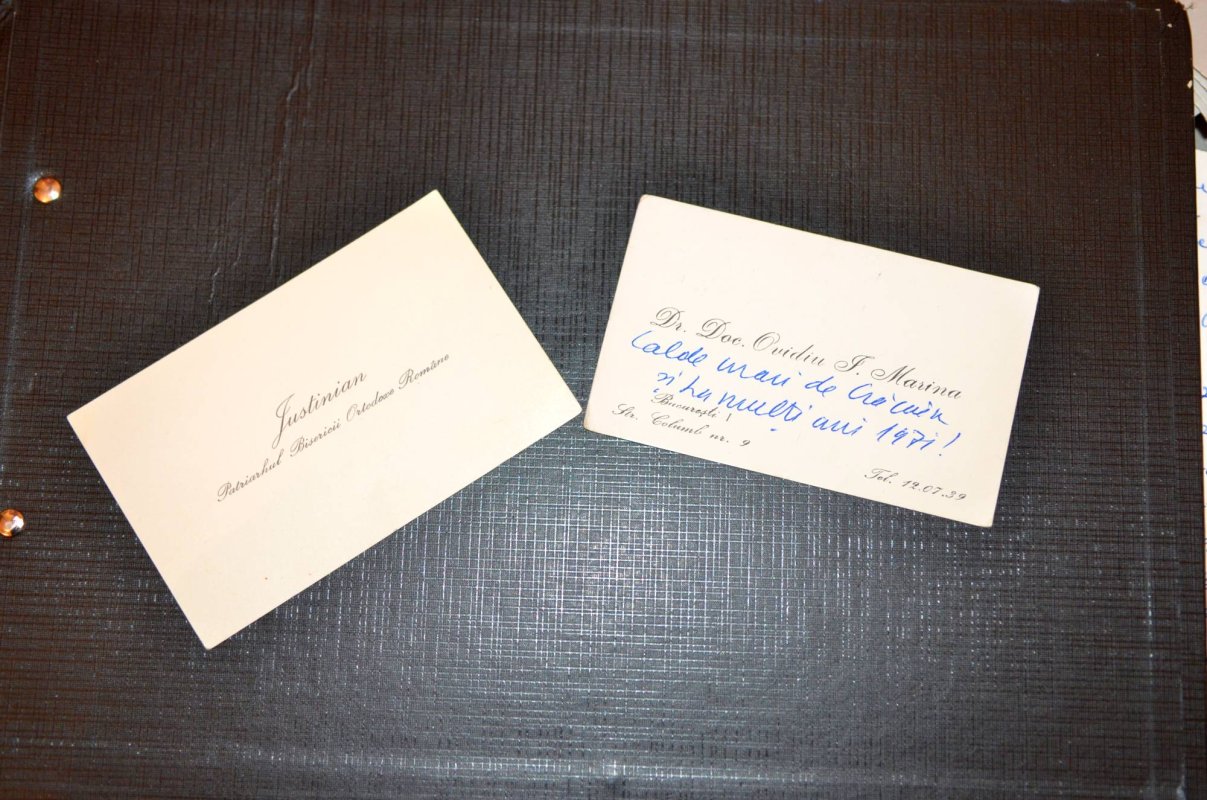 Justinian
Patriarhul Bisericii Ortodoxe Române
Dr. Doc. Ovidiu I. Marina
Calde urări de Crăciun
și La mulți ani 1971!
București
Str. Columb nr. 9
Tel. 12.07.39